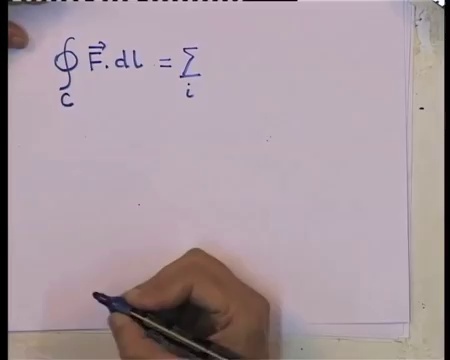 ∮_C F⃗.dl = Σ_i